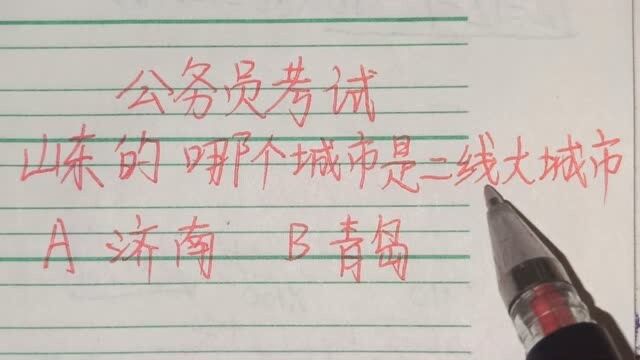 公务员考试
山东的 哪个城市是二线大城市
A 济南 B 青岛